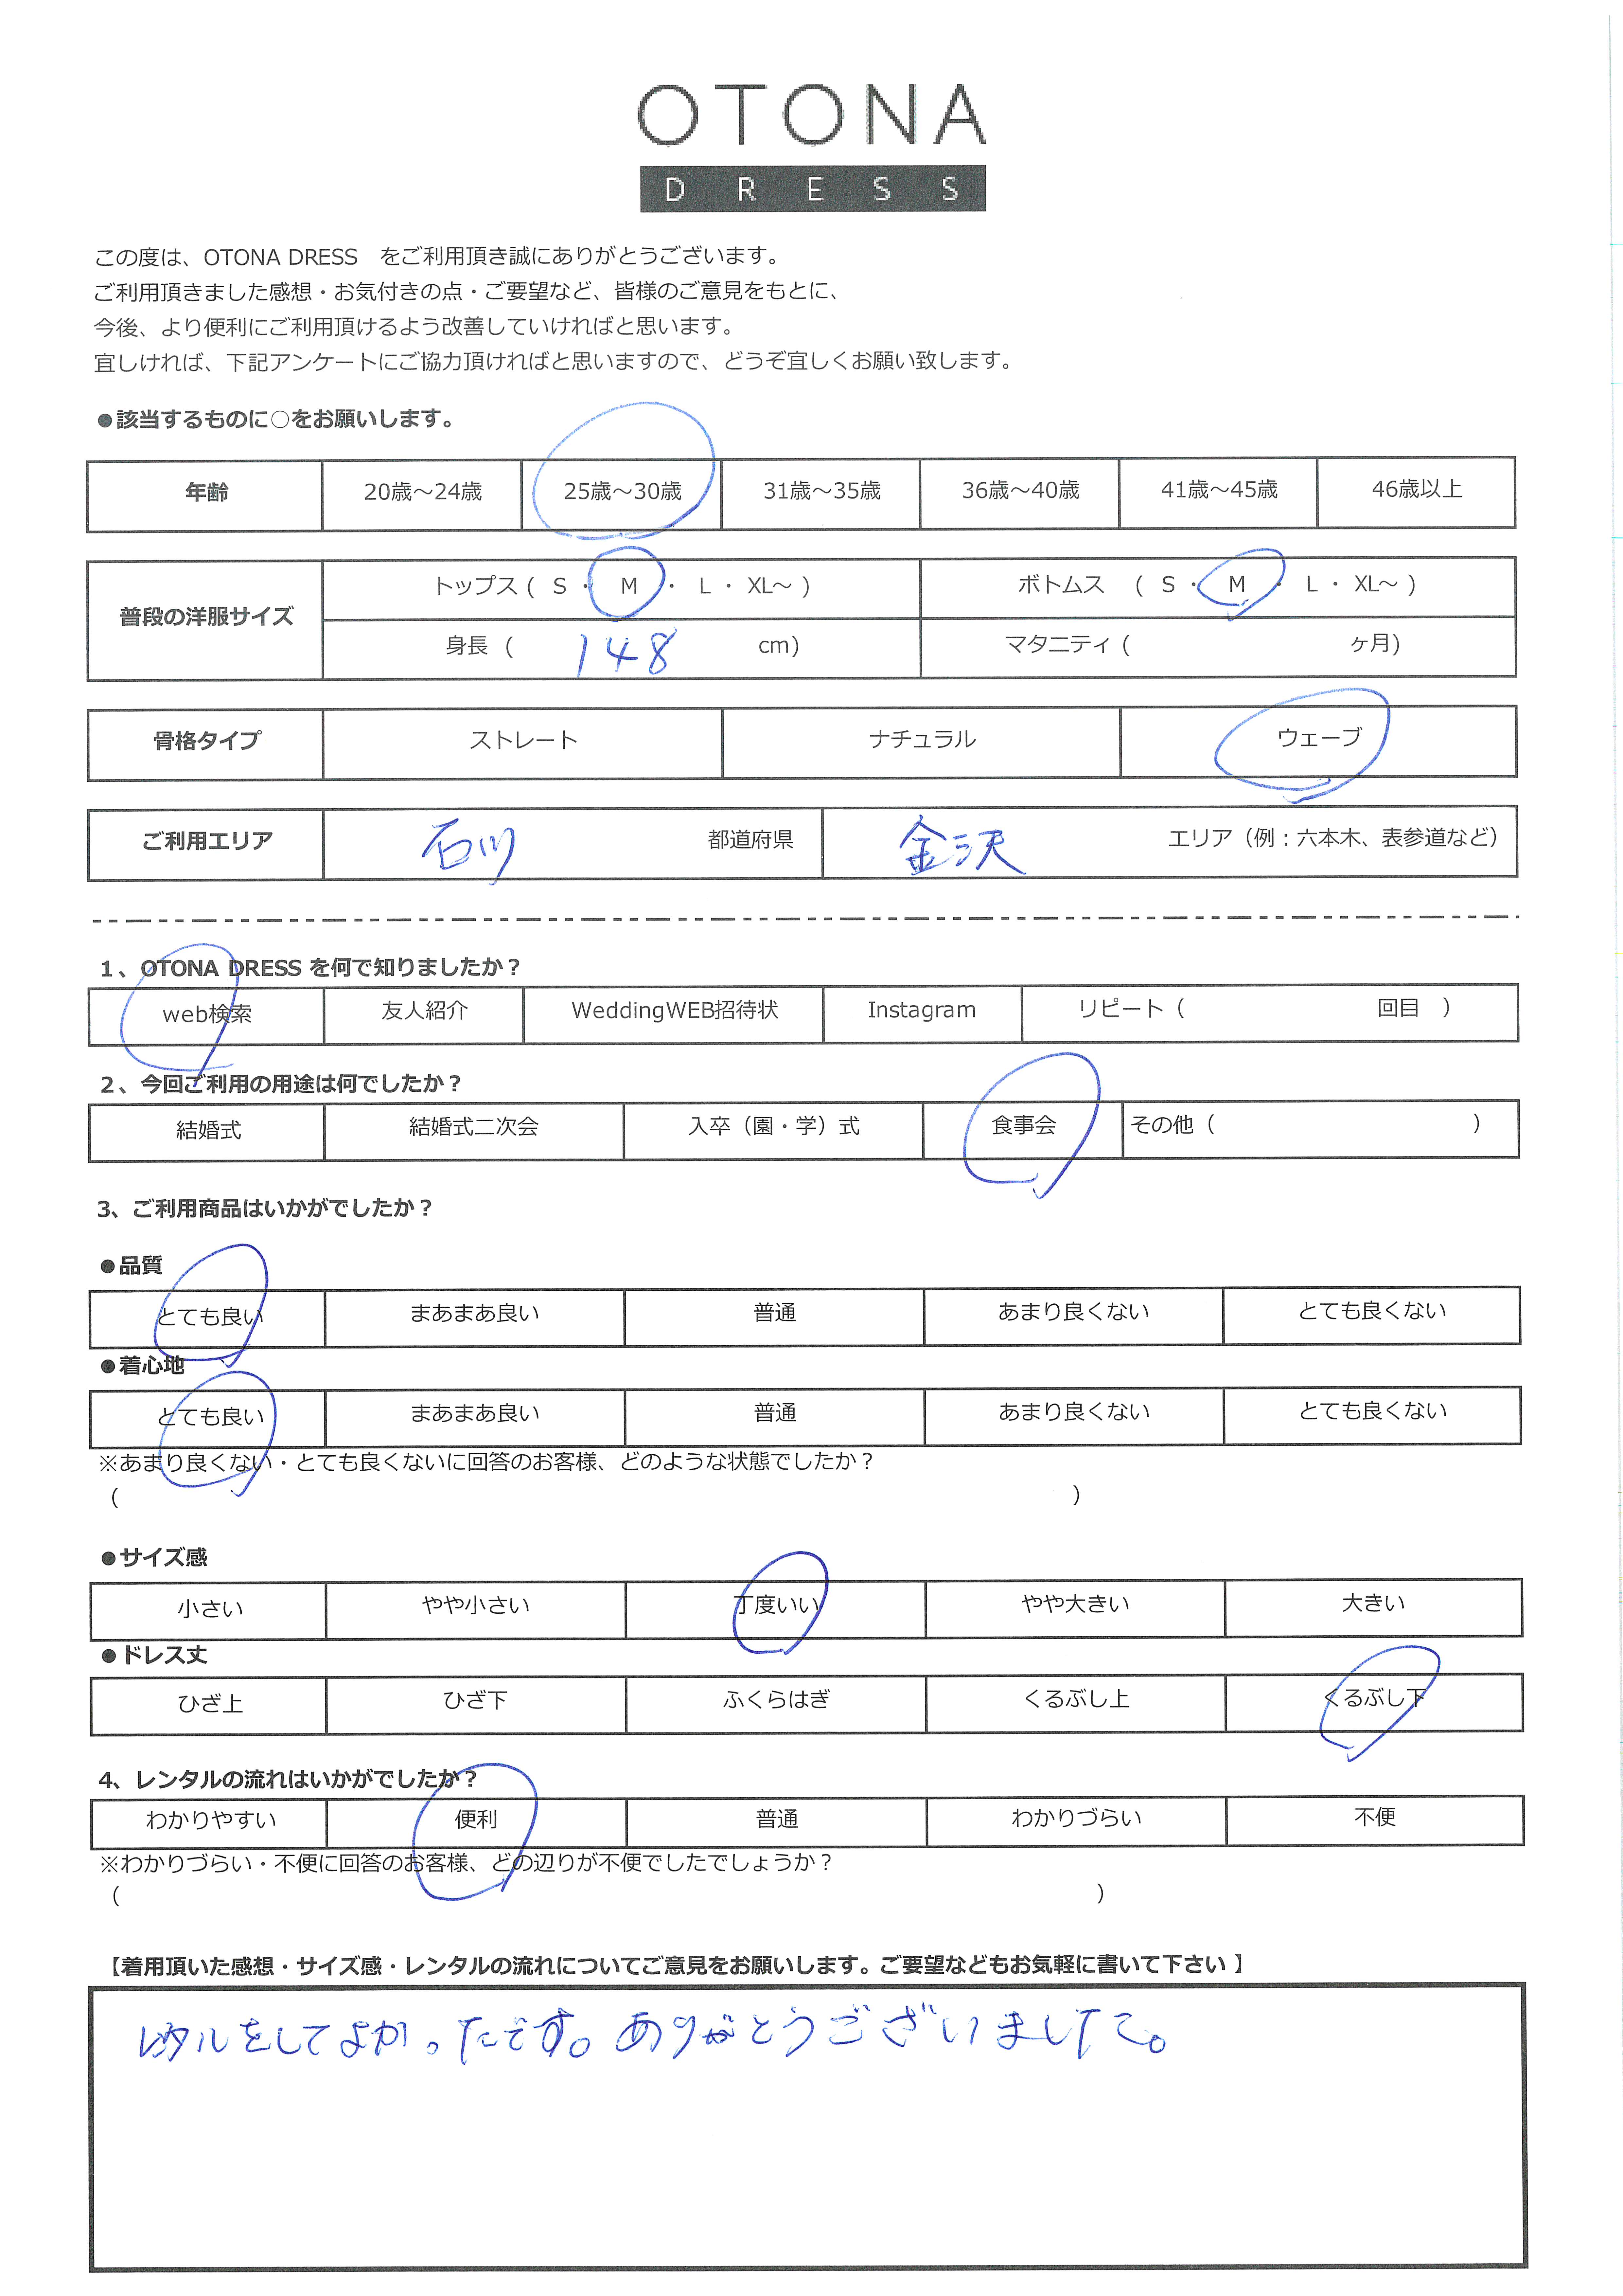 OTONA
DRESS
この度は、OTONA DRESS　をご利用頂き誠にありがとうございます。
ご利用頂きました感想・お気付きの点・ご要望など、皆様のご意見をもとに、
今後、より便利にご利用頂けるよう改善していければと思います。
宜しければ、下記アンケートにご協力頂ければと思いますので、どうぞ宜しくお願い致します。
●該当するものに○をお願いします。
年齢 20歳～24歳 25歳～30歳 31歳～35歳 36歳～40歳 41歳～45歳 46歳以上
普段の洋服サイズ トップス ( S ・ M ・ L ・ XL～ ) ボトムス ( S ・ M ・ L ・ XL～ )
身長 ( 148 cm) マタニティ ( ヶ月)
骨格タイプ ストレート ナチュラル ウェーブ
ご利用エリア 石川 都道府県 金沢 エリア（例：六本木、表参道など）
1、OTONA DRESS を何で知りましたか？
web検索 友人紹介 WeddingWEB招待状 Instagram リピート（ 回目 ）
2、今回ご利用の用途は何でしたか？
結婚式 結婚式二次会 入卒（園・学）式 食事会 その他（ ）
3、ご利用商品はいかがでしたか？
●品質
とても良い まあまあ良い 普通 あまり良くない とても良くない
●着心地
とても良い まあまあ良い 普通 あまり良くない とても良くない
※あまり良くない・とても良くないに回答のお客様、どのような状態でしたか？
( )
●サイズ感
小さい やや小さい 丁度いい やや大きい 大きい
●ドレス丈
ひざ上 ひざ下 ふくらはぎ くるぶし上 くるぶし下
4、レンタルの流れはいかがでしたか？
わかりやすい 便利 普通 わかりづらい 不便
※わかりづらい・不便に回答のお客様、どの辺りが不便でしたでしょうか？
( )
【着用頂いた感想・サイズ感・レンタルの流れについてご意見をお願いします。ご要望などもお気軽に書いて下さい 】
レンタルをしてよかったです。ありがとうございました。